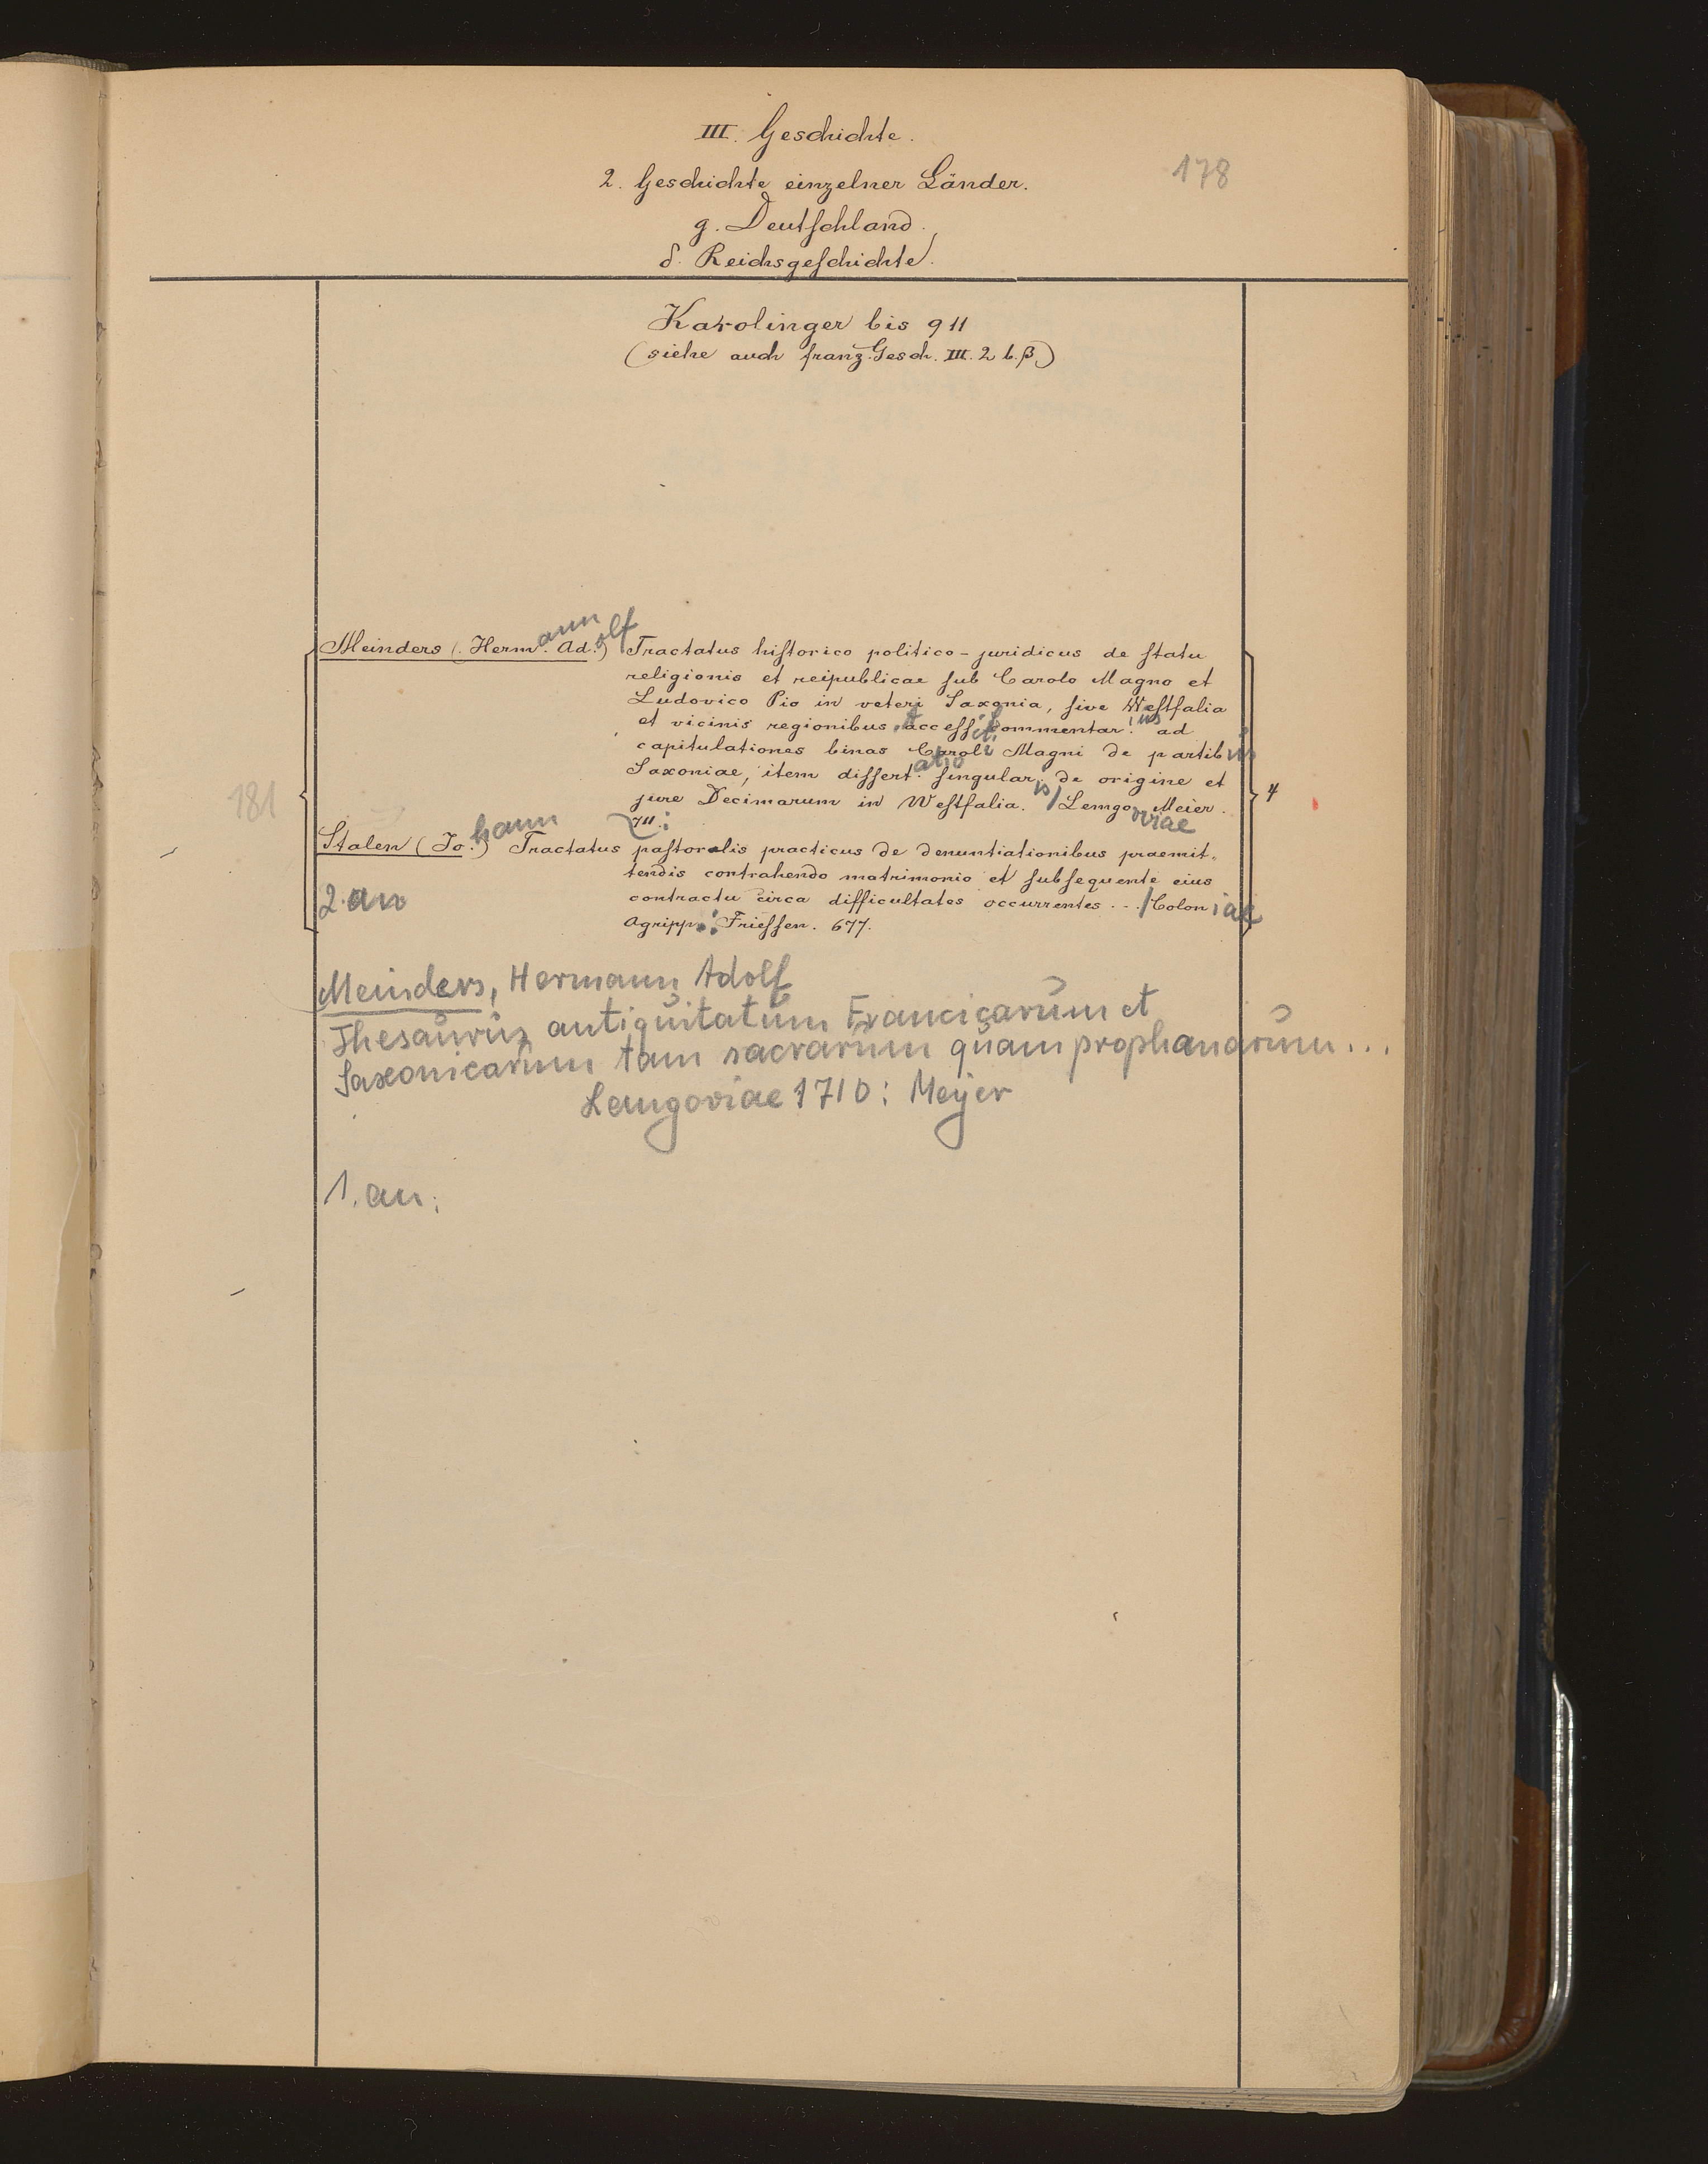 III. Geschichte.
178
2. Geschichte einzelner Länder.
g. Deutschland.
δ. Reichsgeschichte.
Karolinger bis 911
(siehe auch franz. Gesch. III. 2 b. β.)
Meinders (Hermann Adolf) Tractatus historico politico-juridicus de statu
religionis et reipublicae sub Carolo Magno et
Ludovico Pio in veteri Saxonia, sive Westfalia
et vicinis regionibus, access. commentarius ad
capitulationes binas Caroli Magni de partibus
Saxoniae, item dissertatio singularis de origine et
jure Decimarum in Westfalia. / Lemgoviae Meier.
711.:
181
4
Stalen (Johann) Tractatus pastoralis practicus de denuntiationibus praemit-
tendis contrahendo matrimonio et subsequente eius
2. an
contractu circa difficultates occurrentes ... / Coloniae
Agripp.: Friessen. 677.
Meinders, Hermann Adolf
Thesaurus antiquitatum Francicarum et
Saxonicarum tam sacrarum quam prophanarum...
Lemgoviae 1710: Meyer
1. an: